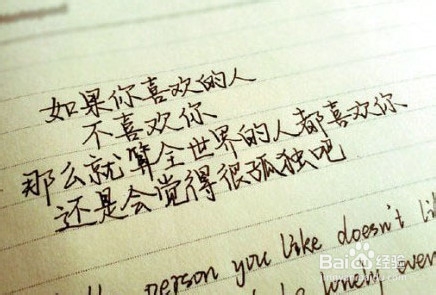 如果你喜欢的人
不喜欢你
那么就算全世界的人都喜欢你
还是会觉得很孤独吧
person you like doesn't li
lonely even
Baidu经验